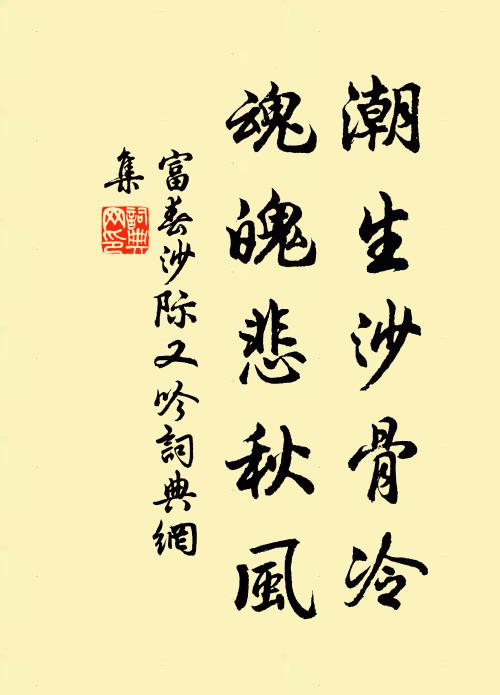 潮生沙骨冷
魂魄悲秋風
富春沙际又吟詞典網
集
詞典網印